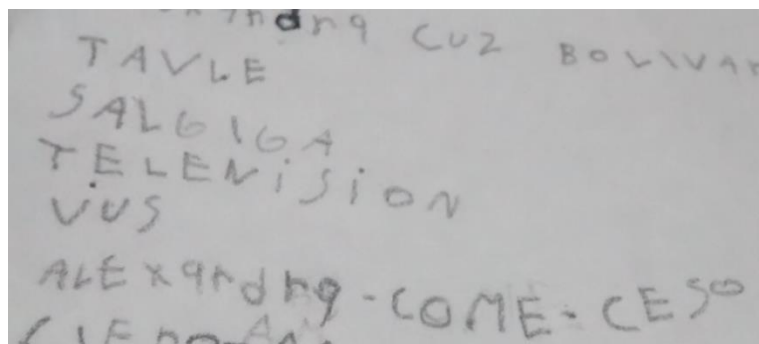 CUZ BOLIVAR
TAVLE
SALGIGA
TELEVISION
VUS
ALExandng-COME-CESO